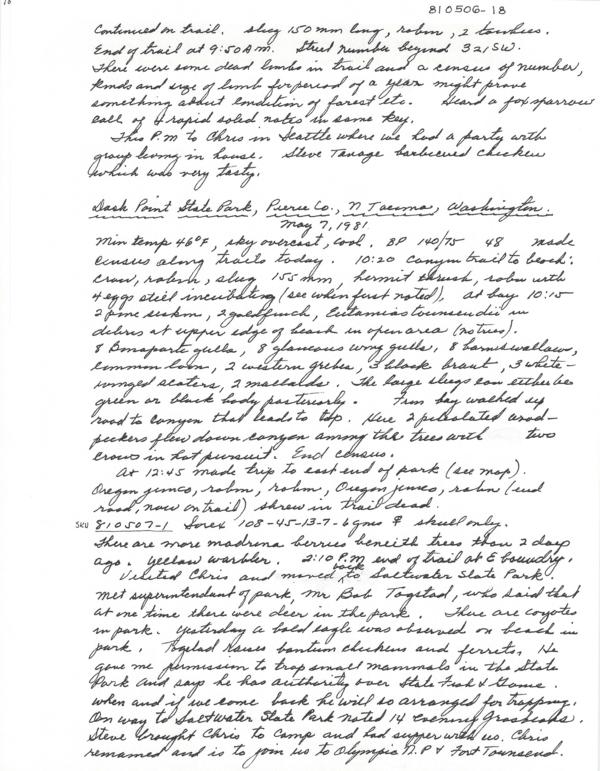 810506-18
Continued on trail. slug 150 mm long, robin, 2 towhees.
End of trail at 9:50 A.M. Street number beyond 321 SW.
There were some dead limbs in trail and a census of number,
kinds and size of limb for period of a year might prove
something about condition of forest etc. Heard a fox sparrow
call of 4 rapid solid notes in same key.
This P.M to Chris in Seattle where we had a party with
group living in house. Steve barbecued chicken
which was very tasty.
Dash Point State Park, Pierce Co., N. Tacoma, Washington.
May 7, 1981
Min temp 46°F, sky overcast, cool. BP 140/75 48 made
census along trails today. 10:20 Canyon trail to beach:
crow, robin, slug 155 mm, hermit thrush, robin with
4 eggs still incubating (see when first noted), at bay 10:15
2 pine siskin, 2 goldfinch, Eutamias townsendii in
debris at upper edge of beach in open area (no trees).
8 Bonaparte gulls, 8 glaucous wing gulls, 8 barn swallows,
common loon, 2 western grebes, 3 black brant, 3 white-
winged scoters, 2 mallards. The large slugs can either be
green or black body posteriorly. From bay walked up
road to canyon that leads to top. Here 2 pileolated wood-
peckers flew down canyon among the trees with two
crows in hot pursuit. End census.
At 12:45 made trip to east end of park (see map).
Oregon junco, robin, robin, Oregon junco, robin (end
road, now on trail) shrew in trail dead.
SKU 810507-1 Sorex 108-45-13-7-6 gms ♀ skull only.
There are more madrona berries beneith trees than 2 days
ago. Yellow warbler. 2:10 P.M. end of trail at E boundry.
Visited Chris and moved back to Saltwater State Park.
Met superintendant of park Mr Bob Togstad, who said that
at one time there were deer in the park. There are coyotes
in park. Yesterday a bald eagle was observed on beach in
park. Togstad raises bantum chickens and ferrits. He
gave me permission to trap small mammals in the State
Park and says he has authority over State Fish & Game.
when and if we come back he will so arranged for trapping.
On way to Saltwater State Park noted 14 evening Grosbeaks.
Steve brought Chris to camp and had supper with us. Chris
remained and is to join us to Olympic N.P & Fort Townsend.